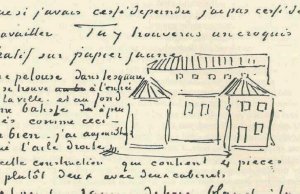 ue si j'avais cessé dependre j'ai pas cessé de
availler Tu y trouveras un croquis
hatif sur papier jaune
ne pelouse dans le square
se trouve à l'entrée
la ville. et au fond
ne batisse
s comme ceci-
h bien. j'ai aujourd'hui
l'aile droite
celle construction qui contient 4 pieces
plutôt deux avec deux cabinets